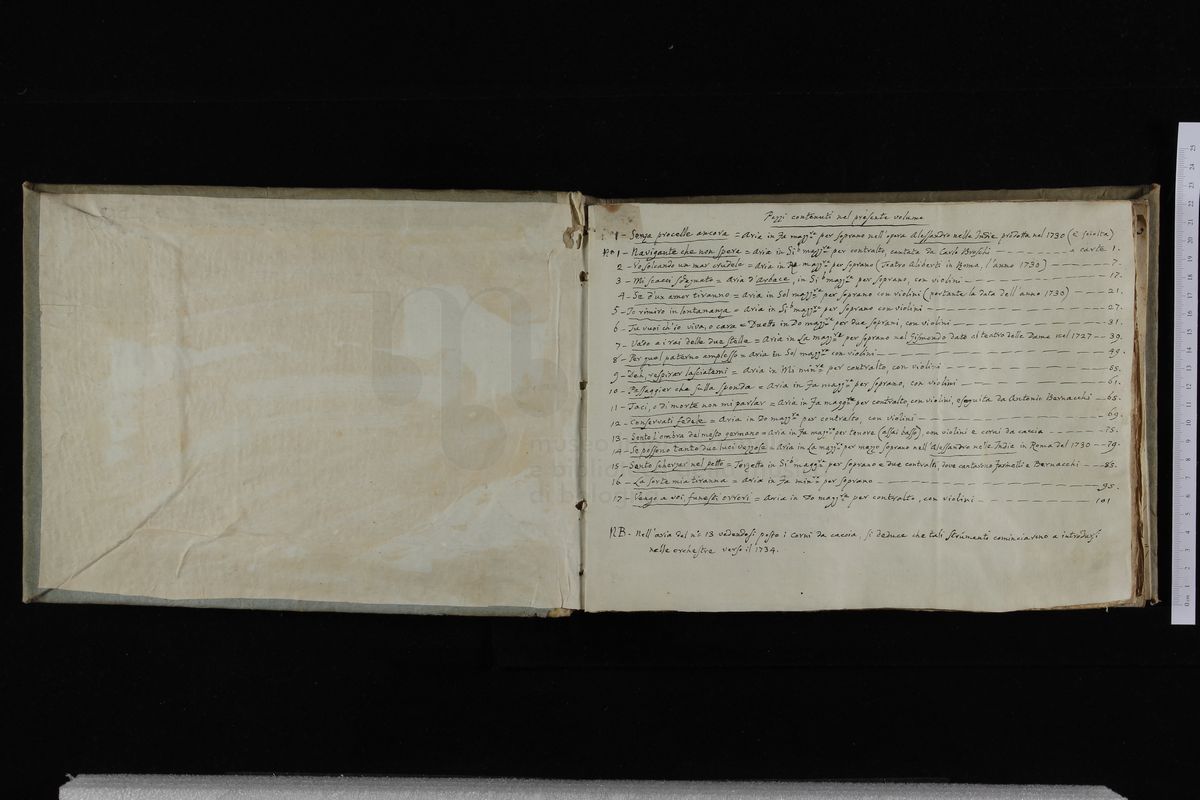 Pezzi contenuti nel presente volume
1 - Senza procelle ancora = Aria in Fa magg.re per soprano nell'opera Alessandro nelle Indie prodotta nel 1730 (è sciolta)
No 1 - Navigante che non spera = Aria in Si b magg.re per contralto, cantata da Carlo Broschi — a carte 1.
2 - Vo solcando un mar crudele = Aria in Re magg.re per soprano (Teatro Aliberti in Roma, l'anno 1730) — 7.
3 - Mi scacci sdegnato = Aria d'Arbace, in Si b magg.re per soprano, con violini — 17.
4 - Se d'un amor tiranno = Aria in Sol magg.re per soprano con violini (portante la data dell'anno 1730) — 21.
5 - Io rimiro in lontananza = Aria in Si b magg.re per soprano con violini — 27.
6 - Tu vuoi ch'io viva, o cara = Duetto in Do magg.re per due soprani, con violini — 31.
7 - Vado a i rai delle due stelle = Aria in La magg.re per soprano nel Gismondo dato al teatro delle Dame nel 1727 — 39.
8 - Per quel paterno amplesso = Aria in Sol magg.re con violini — 49.
9 - Deh, respirar lasciatemi = Aria in Mi min.re per contralto, con violini — 55.
10 - Passaggier che sulla sponda = Aria in Fa magg.re per soprano, con violini — 61.
11 - Taci, o di morte non mi parlar = Aria in Fa magg.re per contralto, con violini, eseguita da Antonio Bernacchi — 65.
12 - Conservati fedele = Aria in Do magg.re per contralto, con violini — 69.
13 - Sento l'ombra del mesto germano = Aria in Fa magg.re per tenore (assai basso), con violini e corni da caccia — 75.
14 - Se possono tanto due luci vezzose = Aria in La magg.re per mezzo soprano nell'Alessandro nelle Indie in Roma del 1730 — 79.
15 - Sento scherzar nel petto = Terzetto in Si b magg.re per soprano e due contralti, dove cantarono Farinelli e Bernacchi — 85.
16 - La sorte mia tiranna = Aria in Fa min.re per soprano — 95.
17 - Vengo a voi, funesti orrori = Aria in Do magg.re per contralto, con violini — 101
NB - Nell'aria del n.o 13 vedendosi posto i corni da caccia, si deduce che tali strumenti cominciarono a introdursi
nelle orchestre verso il 1734.
museo
e biblio
di bolo